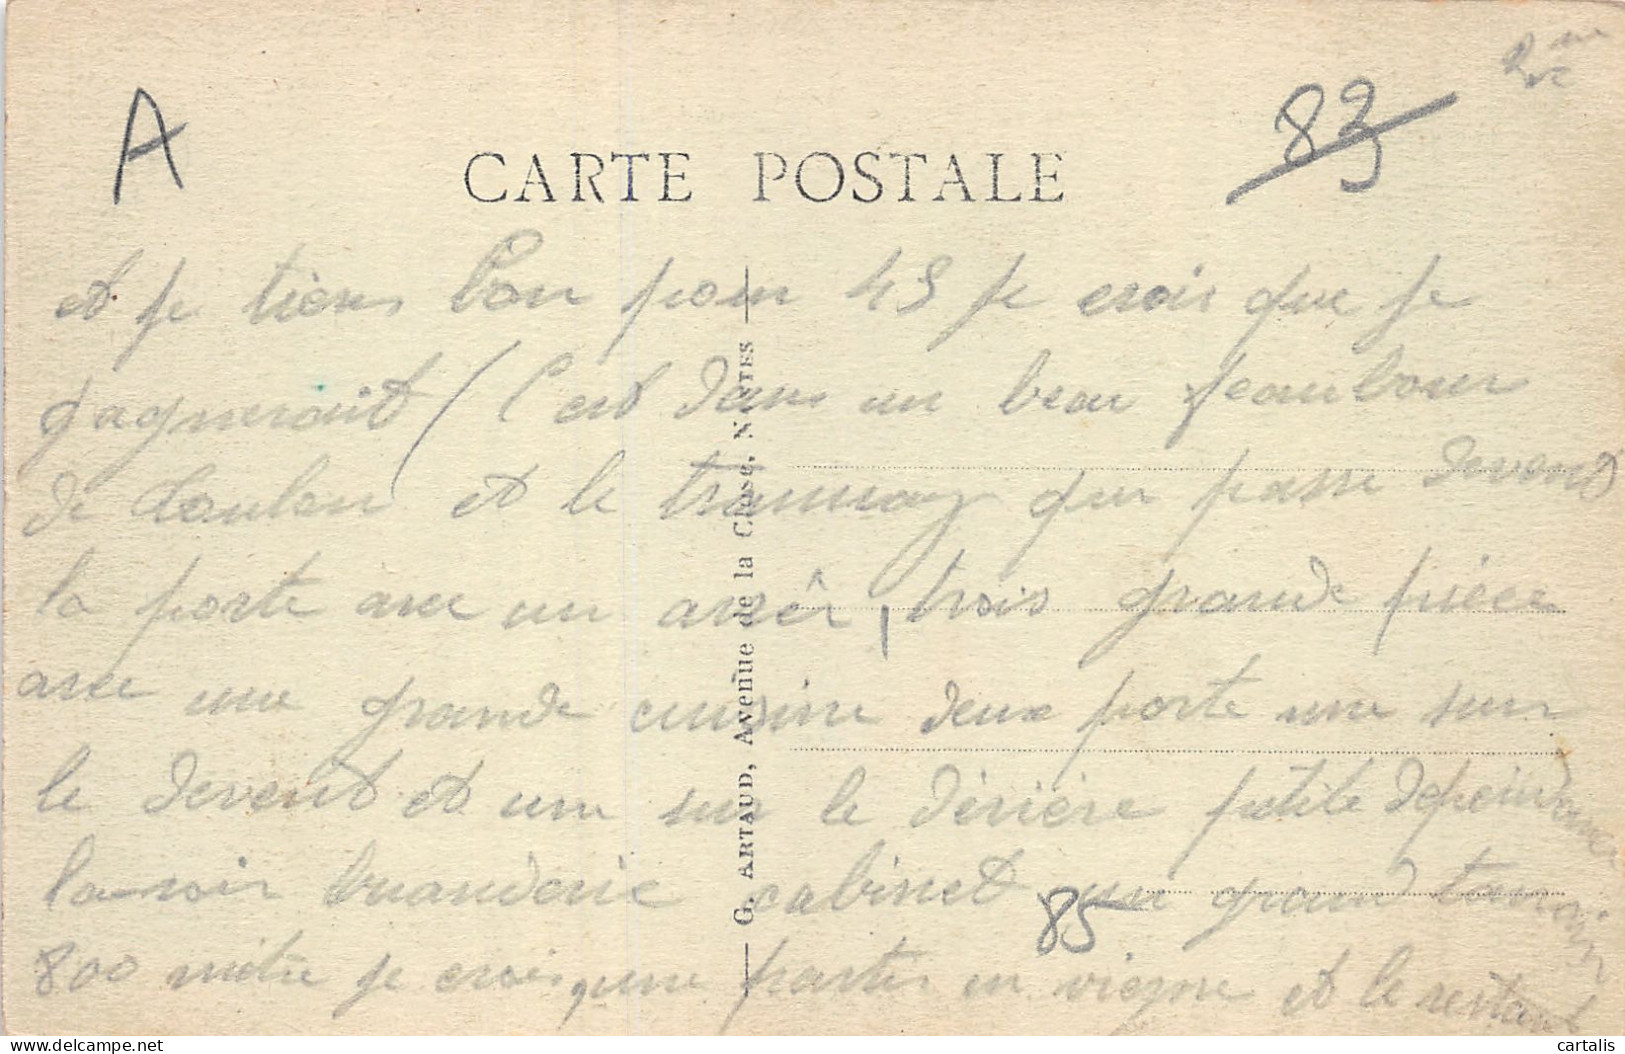 A
83
CARTE POSTALE
et je tiens bon pour 45 je crois que je
gagnerait (C'est dans un beau feaubour
de Toulon et le tramway qui passe devent
la porte avec un arrêr, trois grande pièce
avec une grande cuisine deux porte une sur
le devent et une sur le dérière petite depeindance
lavoir buanderie cabinet un grand tarrain
800 mètre je crois, une partie en vigne et le restant
85
G. ARTAUD, Avenue de la Close, NANTES
cartalis
delcampe.net